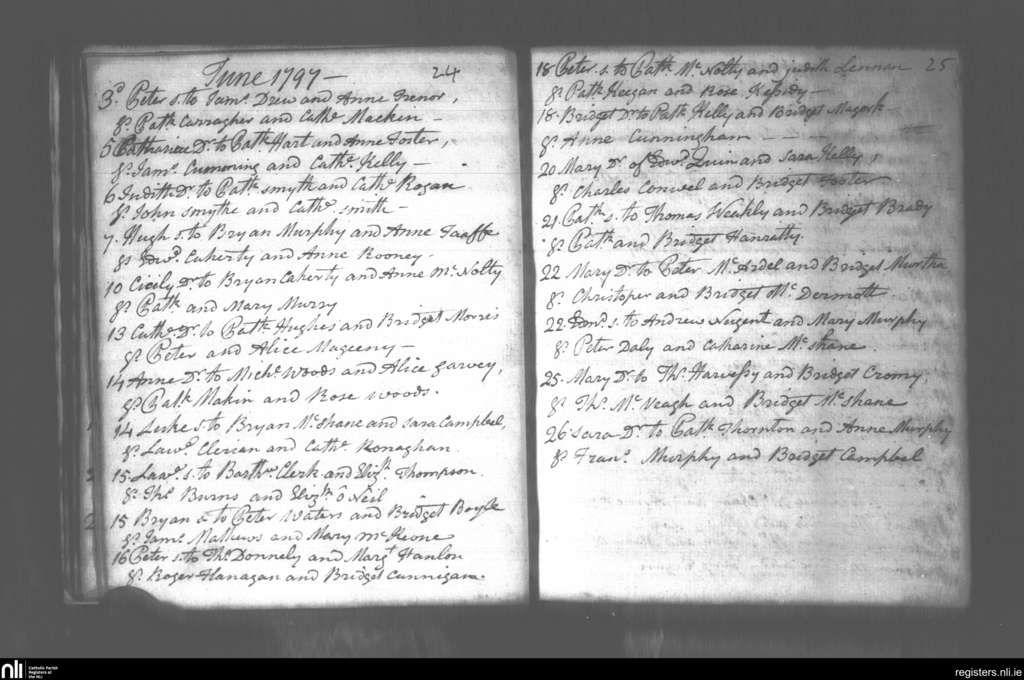 June 1797 — 24
3d. Peter s. to Jams. Drew and Anne Trenor,
Ss. Patk. Carragher and Cathe. Macken —
5 Catharine Dr. to Patk. Hart and Anne Foster,
Ss. Jams. Cummoing and Cathe. Kelly —
6 Judith Dr. to Patk. Smyth and Cathe. Rogan
Ss. John Smythe and Cathe. Smith —
7. Hugh s. to Bryan Murphy and Anne Taaffe
Ss Edwd. Caherty and Anne Rooney.
10 Cicily Dr. to Bryan Caherty and Anne Mc. Nolty
Ss. Patk. and Mary Murry
13 Cathe. Dr. to Patk. Hughes and Bridget Morris
Ss. Peter and Alice Mageeny —
14 Anne Dr. to Michl. Woods and Alice Garvey,
Ss. Patk. Makin and Rose Woods.
14 Luke s. to Bryan Mc. Shane and Sara Campbel,
Ss. Lawe. Clerian and Cathe. Ronaghan.
15. Lawe. s. to Barthw. Clerk and Elizth. Thompson.
Ss. Ths. Burns and Elizth. o Neil
15 Bryan s. to Peter Waters and Bridget Boyle
Ss. Jams. Mathews and Mary Mc. Keone
16 Peter s. to Ths. Donnely and Margt. Hanlon
Ss. Roger Flanagan and Bridget Cunnigam.
18 Peter s. to Patk. Mc. Nolty and Judith Lennan 25
Ss. Patk Keegan and Rose
18. Bridget Dr. to Patk Kelly and Bridget Magork
Ss. Anne Cunningham — — —
20 Mary Dr. of Edwd. Quin and Sara Kelly,
Ss. Charles Conwel and Bridget Foster
21. Patk. s. to Thomas Weakly and Bridget Brady
Ss. Patk. and Bridget Hanratty.
22 Mary Dr. to Peter Mc. Ardel and Bridget Murtha
Ss. Christoper and Bridget Mc. Dermott.
22. Edwd. s. to Andrew Nugent and Mary Murphy
Ss. Peter Daly and Catharine Mc. Shane.
25. Mary Dr. to Ths. Harvessy and Bridget Cromy,
Ss. Ths. Mc. Veagh and Bridget Mc. Shane
26 Sara Dr. to Patk. Thornton and Anne Murphy
Ss. Frans. Murphy and Bridget Campbel
nli Catholic Parish Registers at the NLI
registers.nli.ie